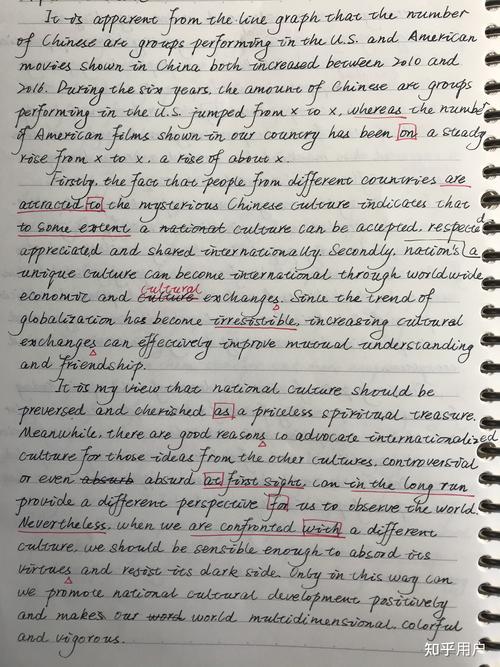 It is apparent from the line graph that the number
of Chinese art groups performing in the U.S. and American
movies shown in China both increased between 2010 and
2016. During the six years, the amount of Chinese art groups
performing in the U.S. jumped from x to x, whereas the number
of American films shown in our country has been on a steady
rise from x to x, a rise of about x.
Firstly, the fact that people from different countries are
attracted to the mysterious Chinese culture indicates that
to some extent a national culture can be accepted, respected
appreciated and shared internationally. Secondly, nation's a
unique culture can become international through worldwide
cultural
economic and culture exchanges. Since the trend of
globalization has become irresistible, increasing cultural
exchanges can effectively improve mutual understanding
and friendship.
It is my view that national culture should be
preversed and cherished as a priceless spiritual treasure.
Meanwhile, there are good reasons to advocate internationalized
culture for those ideas from the other cultures, controversial
or even absurb absurd at first sight, can in the long run
provide a different perspective for us to observe the world.
Nevertheless, when we are confronted with a different
culture, we should be sensible enough to absord its
virtues and resist its dark side. Only in this way can
we promote national cultural development positively
and makes our word world multidimensional, colorful
and vigorous.
知乎用户